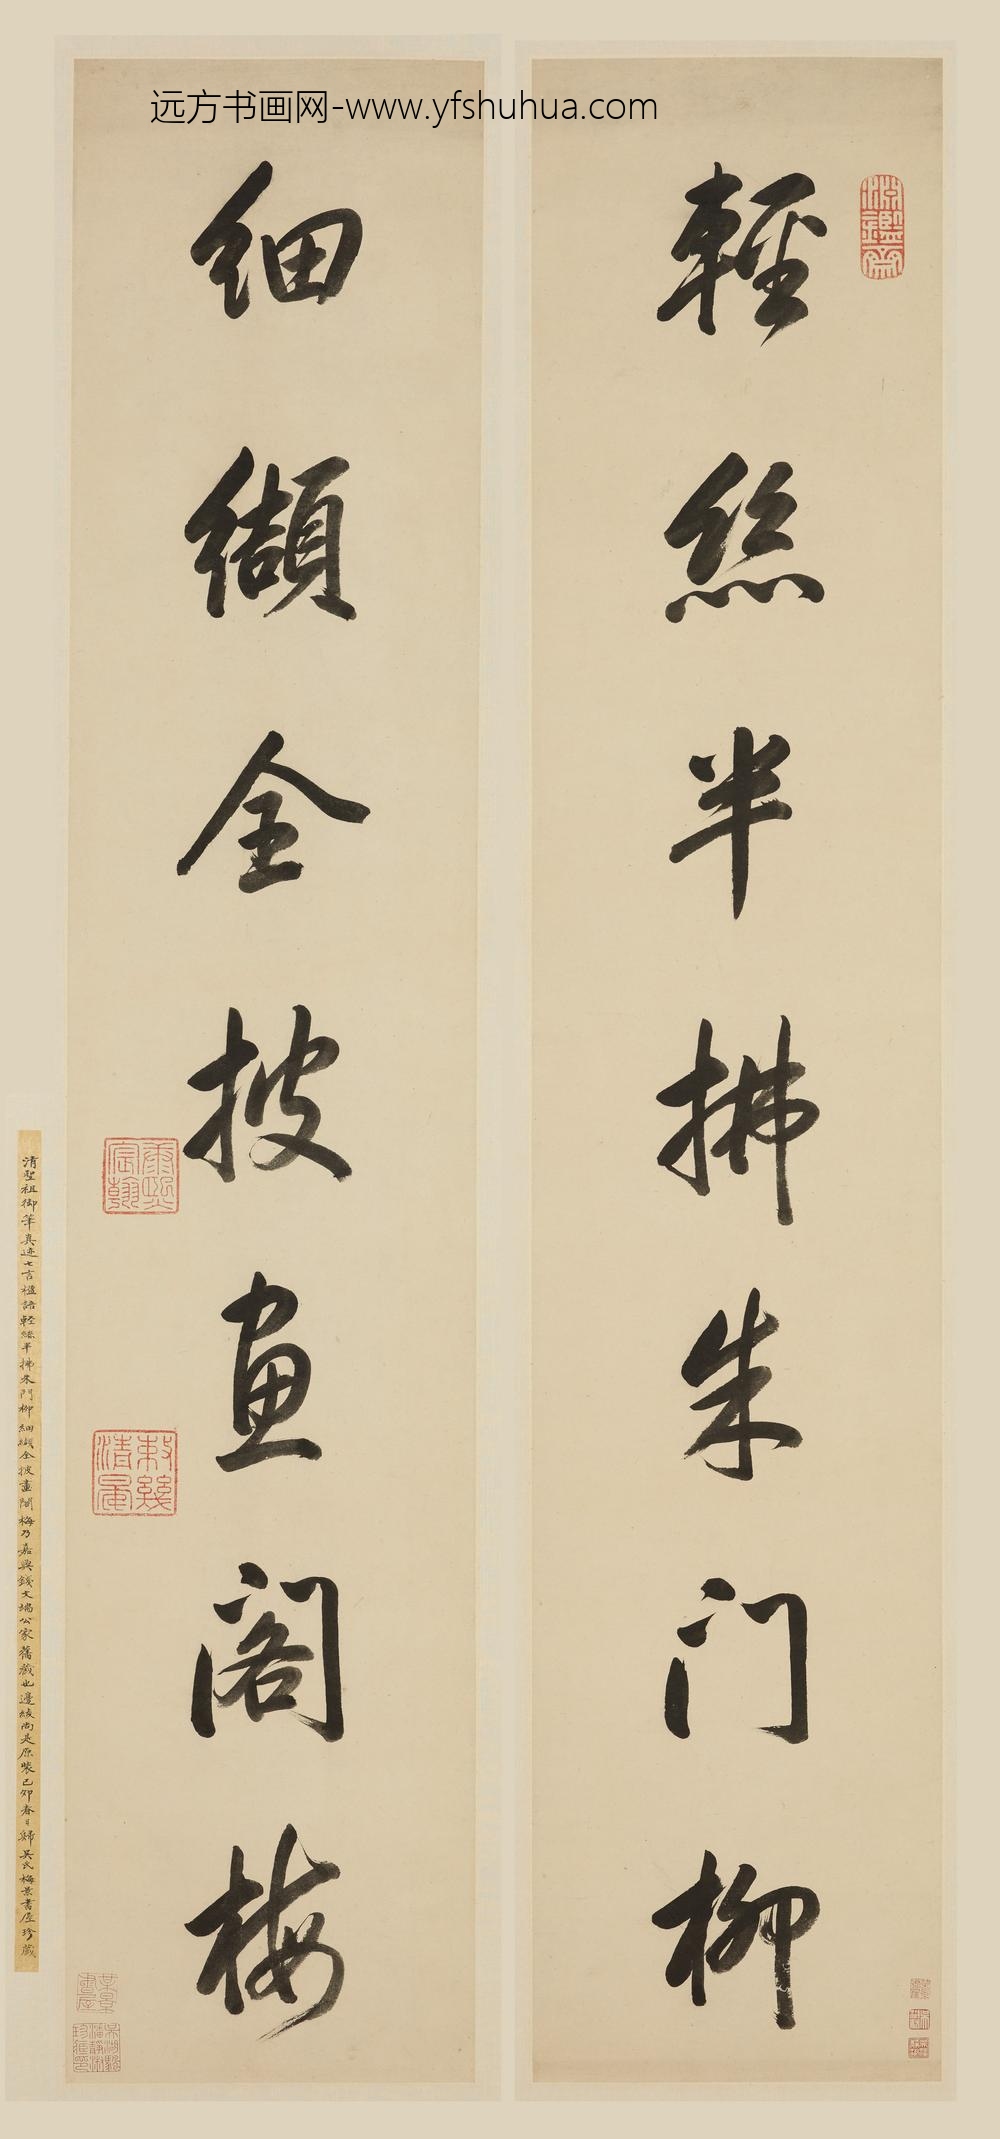 远方书画网-www.yfshuhua.com
輕絲半拂朱门柳
细纈全披畫阁梅
淵鑑齋
康熙宸翰
敕幾清晏
清聖祖御筆真迹七言楹語輕絲半拂朱門柳細纈全披畫閣梅乃嘉興錢文端公家舊藏也邊綾尚是原裝己卯春日歸吳氏梅景書屋珍藏